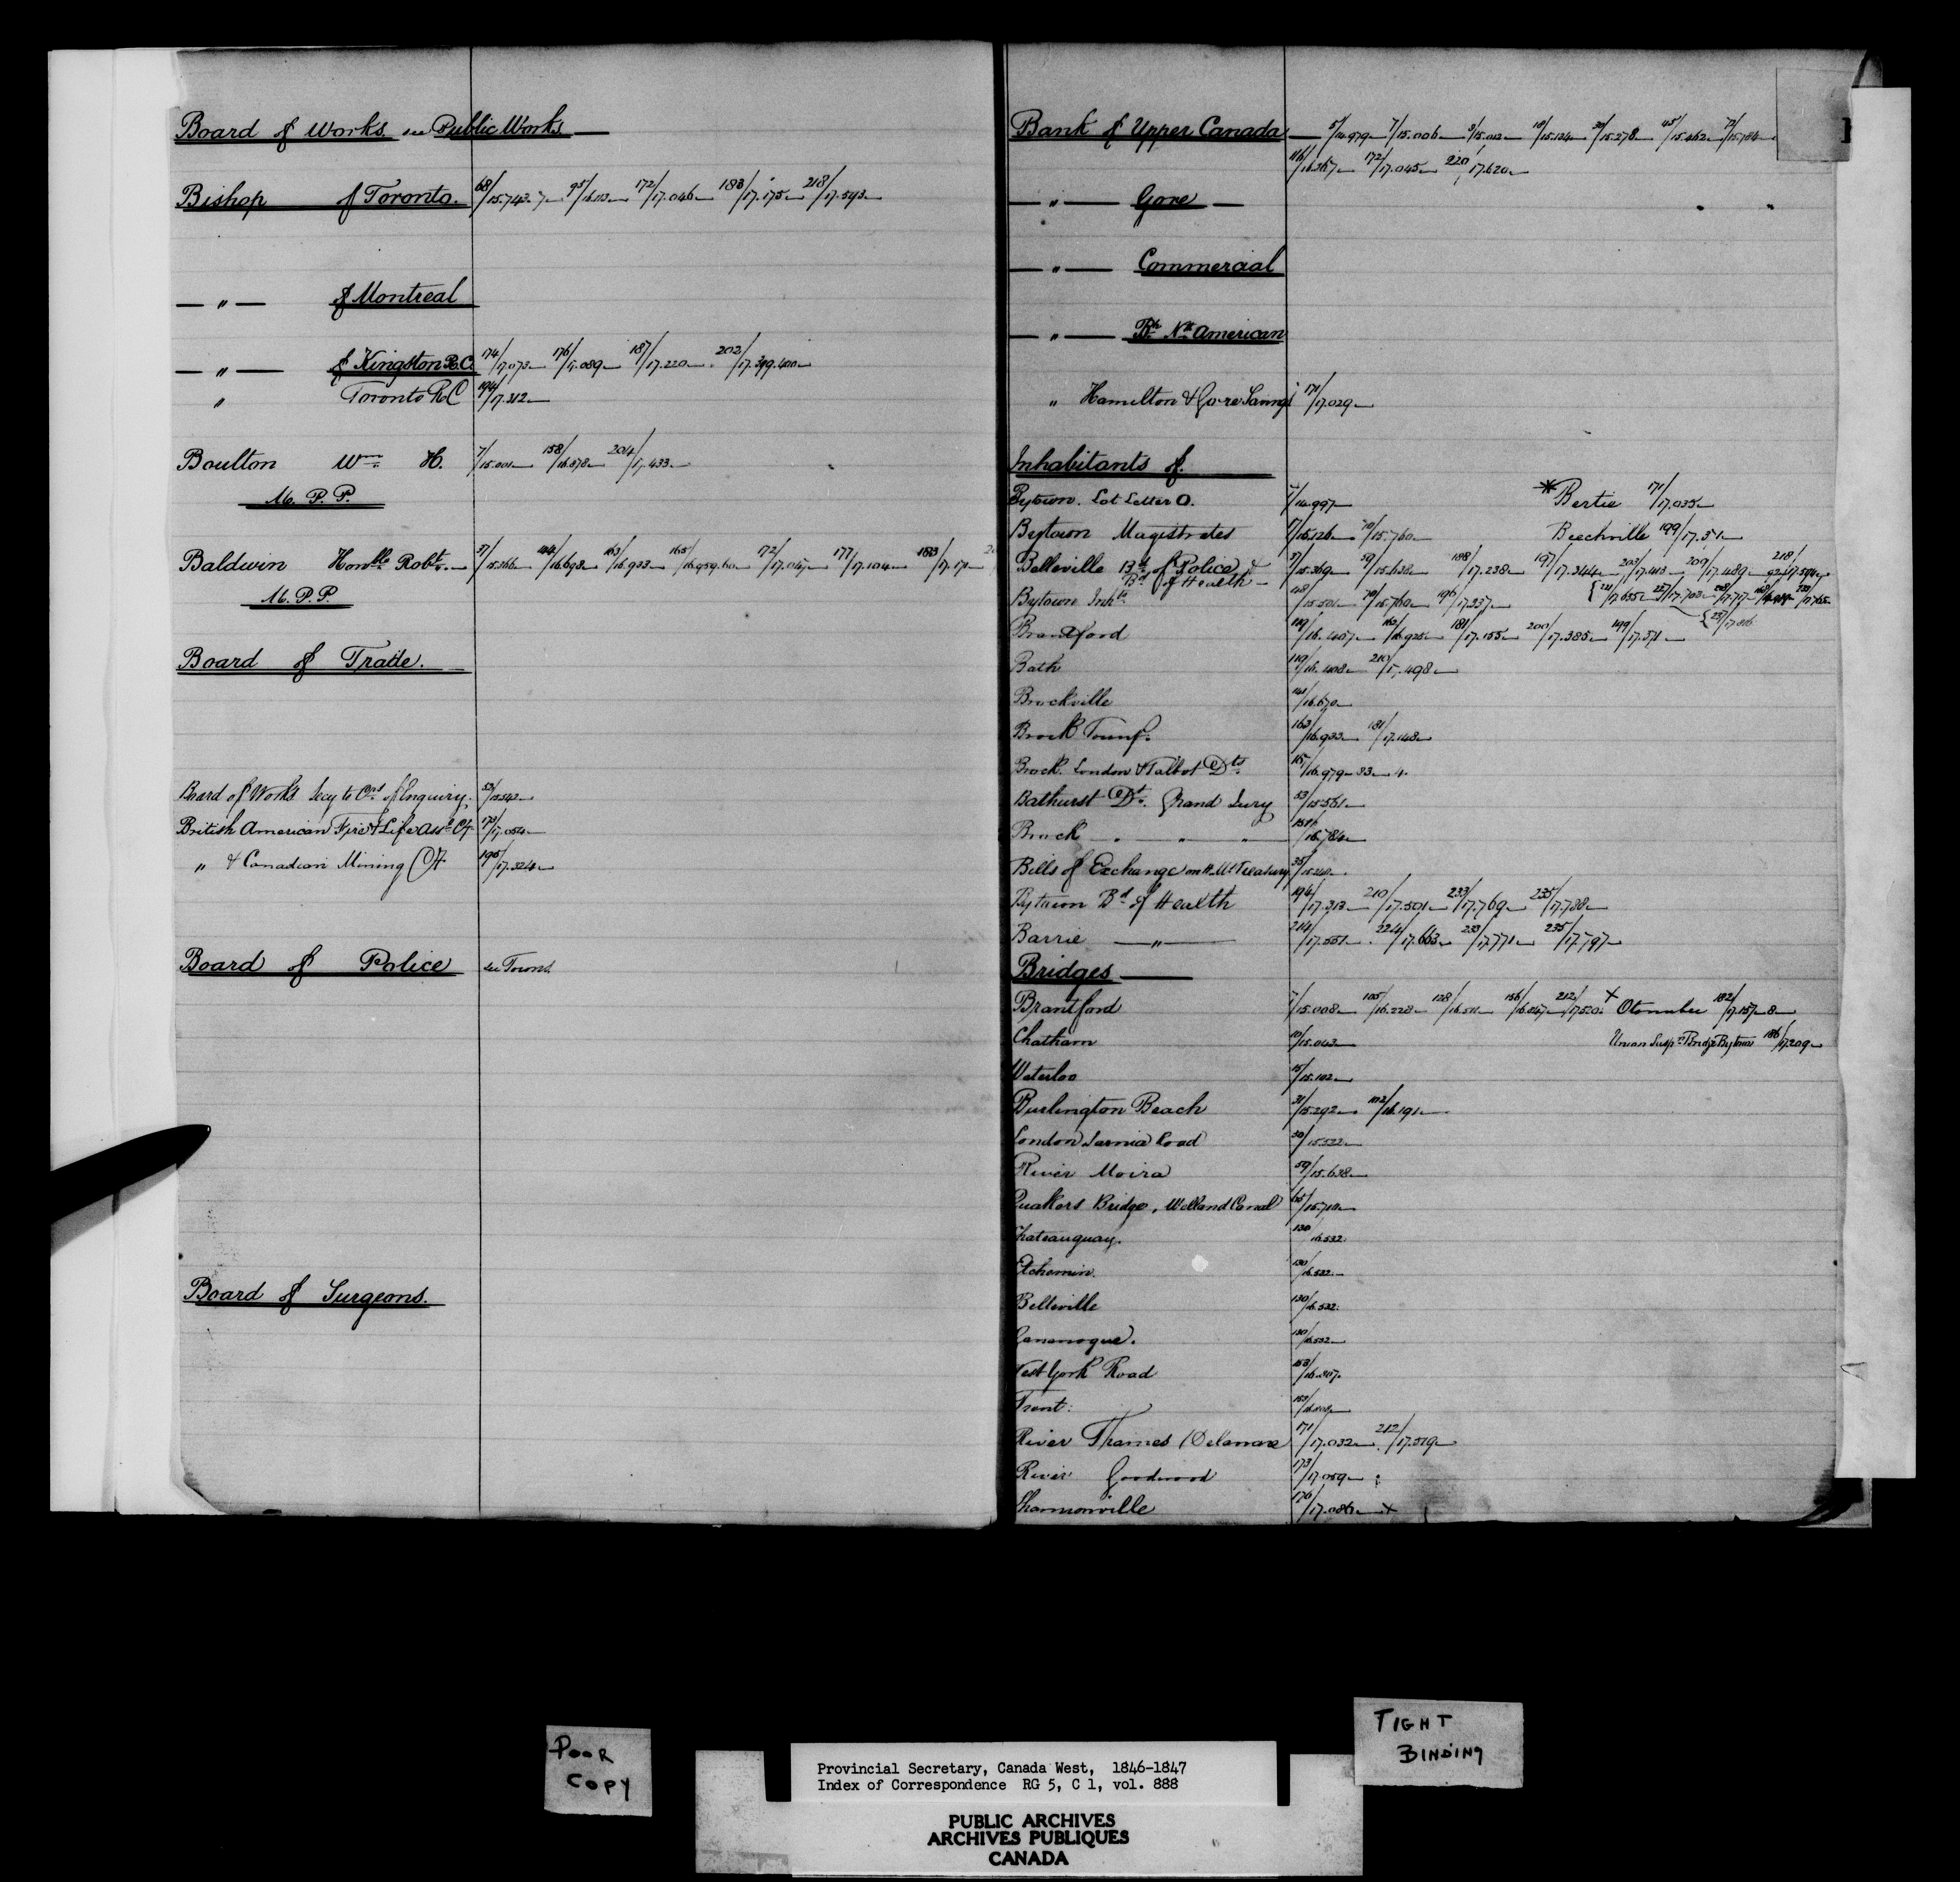 Board of Works. see Public Works
Bishop of Toronto. 68/15.743.7 95/16.113 172/17.046 183/17.175 218/17.593
— " — of Montreal
— " — of Kingston R.C. 174/17.073 176/17.089 187/17.220 202/17.399.400
" Toronto R.C 194/17.312
Boulton Wm. H. 7/15.001 158/16.878 204/17.433
M. P. P.
Baldwin Honble Robt. 37/15.366 144/16.693 163/16.933 165/16.959.60 172/17.047 177/17.104 183/17.171
M. P. P.
Board of Trade.
Board of Works Secy to Crs of Enquiry. 52/15.542
British American Fire & Life Assce Cy. 173/17.054
" & Canadian Mining Cy. 195/17.324
Board of Police see Towns
Board of Surgeons.
Bank of Upper Canada 5/14.979 7/15.006 8/15.012 18/15.124 30/15.278 45/15.462 72/15.784
116/16.367 172/17.045 220/17.620
— " — Gore —
— " — Commercial
— " — Bh. Nh. American
" Hamilton & Gore Savings 171/17.029
Inhabitants of.
Bytown. Lot Letter O. 7/14.997 * Bertie 171/17.035
Bytown Magistrates 17/15.126 70/15.760 Beechville 199/17.51
Belleville Bd. of Police & 37/15.369 59/15.638 188/17.238 197/17.344 203/17.413 209/17.489.92 218/17.594
Bd of Health
Bytown Inhts 48/15.501 70/15.760 196/17.337
Brantford 119/16.407 162/16.925 181/17.155 200/17.385 199/17.371
Bath 119/16.408 210/17.498
Brockville 141/16.670
Brock Township. 163/16.933 181/17.148
Brock. London & Talbot Dts. 167/16.979-83
Bathurst Dt. Grand Jury 53/15.561
Brock " " " 16.784
Bills of Exchange on H.M. Treasury 35/15.340
Bytown Bd of Health 194/17.313 210/17.501 233/17.769 235/17.788
Barrie — " — 214/17.551 224/17.663 233/17.771 235/17.797
Bridges
Brantford 7/15.008 105/16.228 128/16.511 156/16.847 212/17.520. x Otonabee 182/17.157-8
Chatham 10/15.043 Union Suspn Bridge Bytown 186/17.209
Waterloo 15/15.102
Burlington Beach 31/15.292 102/16.191
London Sarnia Road 50/15.522
River Moira 59/15.638
Quakers Bridge, Welland Canal 65/15.710
Chateauguay. 130/16.532
Etchemin. 130/16.532
Belleville 130/16.532
Gananoque. 130/16.532
West York Road 153/16.807
Trent. 153/16.808
River Thames (Delaware 171/17.032 212/17.519
River Goodwood 173/17.059
Shannonville 176/17.086 x
POOR
COPY
TIGHT
BINDING
Provincial Secretary, Canada West, 1846-1847
Index of Correspondence RG 5, C 1, vol. 888
PUBLIC ARCHIVES
ARCHIVES PUBLIQUES
CANADA